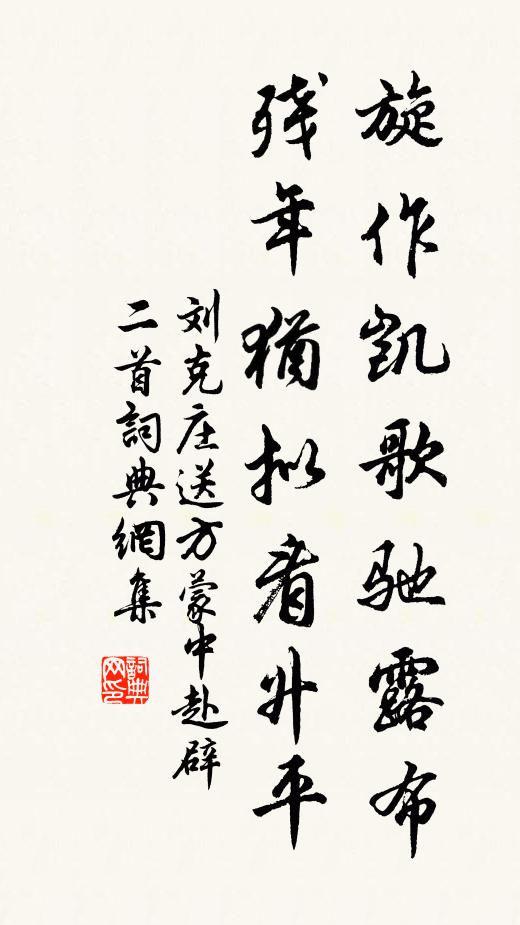 旋作凯歌驰露布
残年猶拟看升平
刘克庄送方蒙中赴辟
二首詞典網集
詞典网印